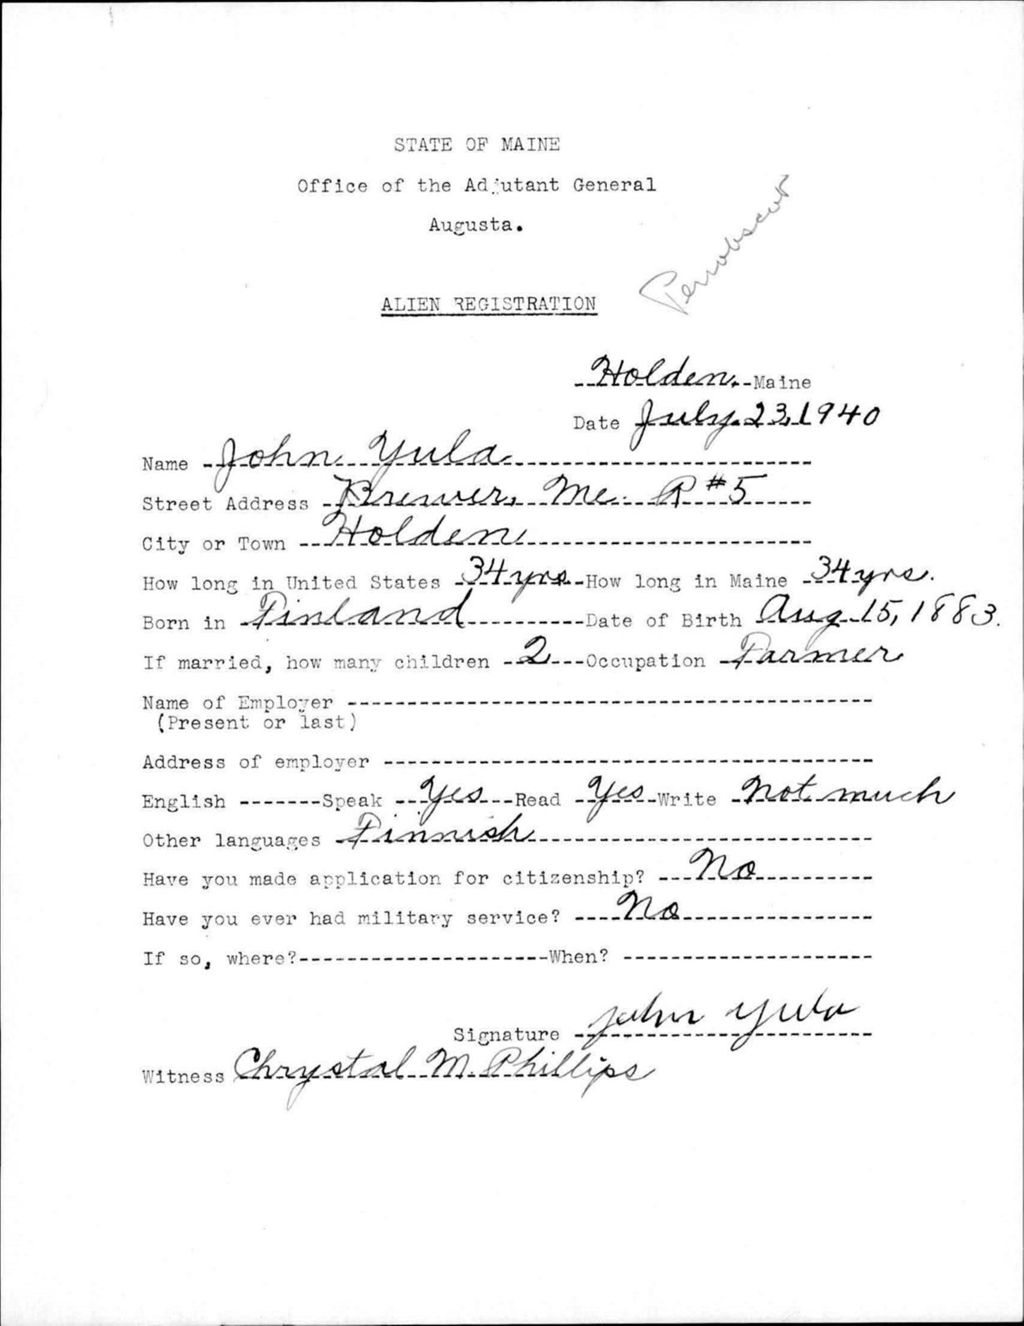 STATE OF MAINE
Office of the Adjutant General
Augusta.
Penobscot
ALIEN REGISTRATION
Holden, Maine
Date July 23, 1940
Name John Yula
Street Address Brewer, Me. R #5
City or Town Holden
How long in United States 34 yrs How long in Maine 34 yrs.
Born in Finland Date of Birth Aug 15, 1883.
If married, how many children 2 Occupation Farmer
Name of Employer
(Present or last)
Address of employer
English Speak Yes Read Yes Write Not much
Other languages Finnish
Have you made application for citizenship? No
Have you ever had military service? No
If so, where? When?
Signature John Yula
Witness Chrystal M. Phillips